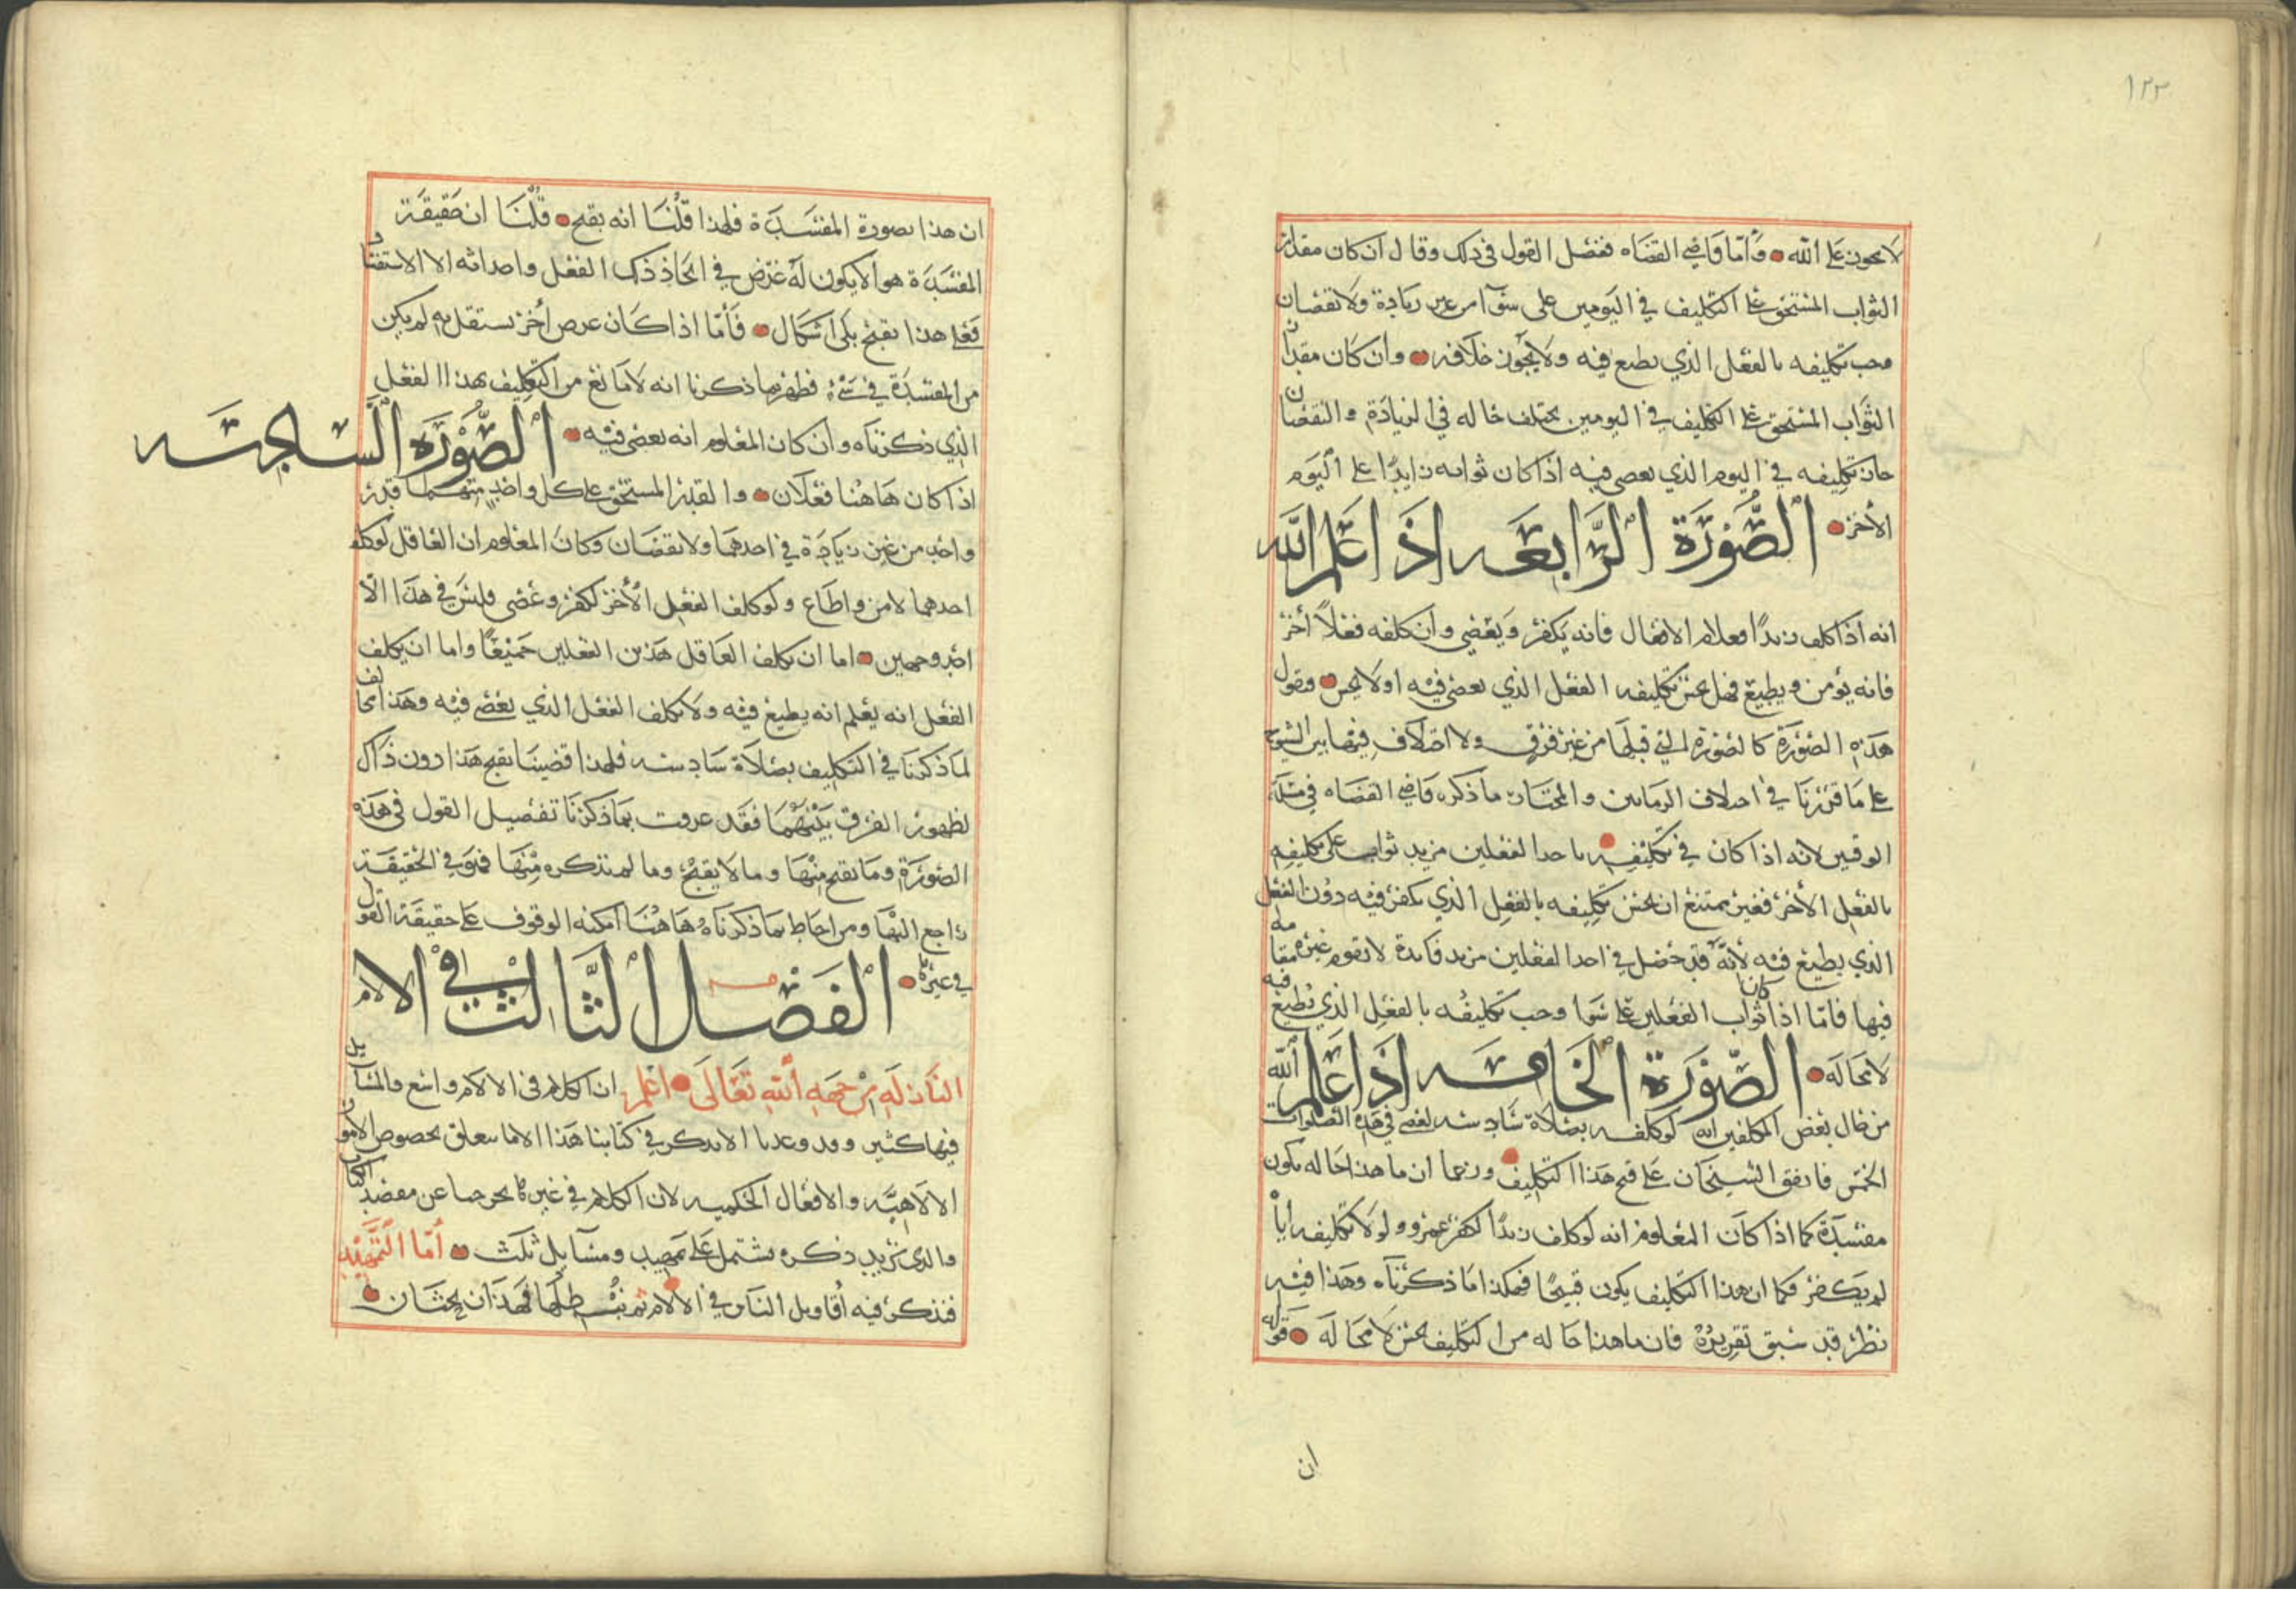 ١٢٣
لا يجوز على الله وأما قاضي القضاه ففصل القول في ذلك وقال ان كان مقدار
الثواب المستحق على التكليف في اليومين على سوآ من غير زيادة ولا نقصان
وجب تكليفه بالفعل الذي يطيع فيه ولا يجوز خلافه وان كان مقدار
الثواب المستحق على التكليف في اليومين يختلف حاله في الزيادة والنقصان
جاز تكليفه في اليوم الذي يعصي فيه اذا كان ثوابه زايدًا على اليوم
الأخر الصورة الرابعه اذا علم الله
انه اذا كلف زيدًا فعلا من الافعال فانه يكفر ويعصي وان كلفه فعلاً أخر
فانه يؤمن ويطيع فهل يحسن تكليفه الفعل الذي يعصي فيه او لا يحسن ونقول
هذه الصورة كالصورة التي قبلها من غير فرق ولا اختلاف فيها بين الشيوخ
على ما قررنا في اختلاف الزمانين والمختار ما ذكره قاضي القضاه في مسئلة
الوقتين لانه اذا كان في تكليفه باحد الفعلين مزيد ثواب على تكليفه
بالفعل الأخر فغير ممتنع ان يحسن تكليفه بالفعل الذي يكفر فيه دون الفعل
الذي يطيع فيه لأنه قد حصل في احد الفعلين مزيد فائدة لا تقوم غيره مقامه
فيها فاما اذا كان ثواب الفعلين على سوا وجب تكليفه بالفعل الذي يطيع فيه
لا محاله الصورة الخامسه اذا علم الله
من حال بعض المكلفين انه لو كلفه بصلاة سادسه لعصى في هذه الصلوات
الخمس فاتفق الشيخان على قبح هذا التكليف وزعما ان ما هذا حاله يكون
مفسدة كما اذا كان المعلوم انه لو كلف زيدًا لكفر عمرو ولولا تكليفه اياه
لم يكفر فكما ان هذا التكليف يكون قبيحًا فهكذا ما ذكرناه وهذا فيه
نظر قد سبق تقريره فان ما هذا حاله من التكليف يحسن لا محاله قوله
ان
ان هذا بصورة المفسدة فلهذا قلنا انه يقبح قلنا ان حقيقة
المفسدة هو الا يكون له غرض في اتخاذ ذلك الفعل واحداثه الا الاستفساد
فعلى هذا يقبح بلى اشكال فأما اذا كان غرض أخر يستقل به لم يكن
من المفسدة في شيء فظهر بما ذكرنا انه لا مانع من التكليف بهذا الفعل
الذي ذكرناه وان كان المعلوم انه يعصي فيه الصورة السادسه
اذا كان هاهنا فعلان والقدر المستحق على كل واحد منهما قدر
واحد من غير زيادة في احدهما ولا نقصان وكان المعلوم ان العاقل لو كلف
احدهما لامن واطاع ولو كلف الفعل الأخر لكفر وعصى فليس في هذا الا
احد وجهين اما ان يكلف العاقل هذين الفعلين جميعًا واما ان يكلف
الفعل انه يعلم انه يطيع فيه ولا يكلف الفعل الذي يعصي فيه وهذا مخالف
لما ذكرنا في التكليف بصلاة سادسه فلهذا قضينا بقبح هذا دون ذاك
لظهور الفرق بينهما فقد عرفت بما ذكرنا تفصيل القول في هذه
الصورة وما يقبح منها وما لا يقبح وما لم نذكره منها فهو في الحقيقة
راجع اليها ومن احاط بما ذكرناه هاهنا امكنه الوقوف على حقيقة القول
في غيره الفصل الثالث في الالام
النازله من جهه الله تعالى اعلم ان الكلام في الالام واسع والمسايل
فيها كثير وقد وعدنا الا نذكر في كتابنا هذا الا ما يتعلق بخصوص الامور
الالاهيه والافعال الحكميه لان الكلام في غيرها يخرجنا عن مقصد الكتاب
والذي نريد ذكره يشتمل على تمهيد ومسآيل ثلث أما التمهيد
فنذكر فيه أقاويل الناس في الالام ثم نبطلها فهذان بحثان